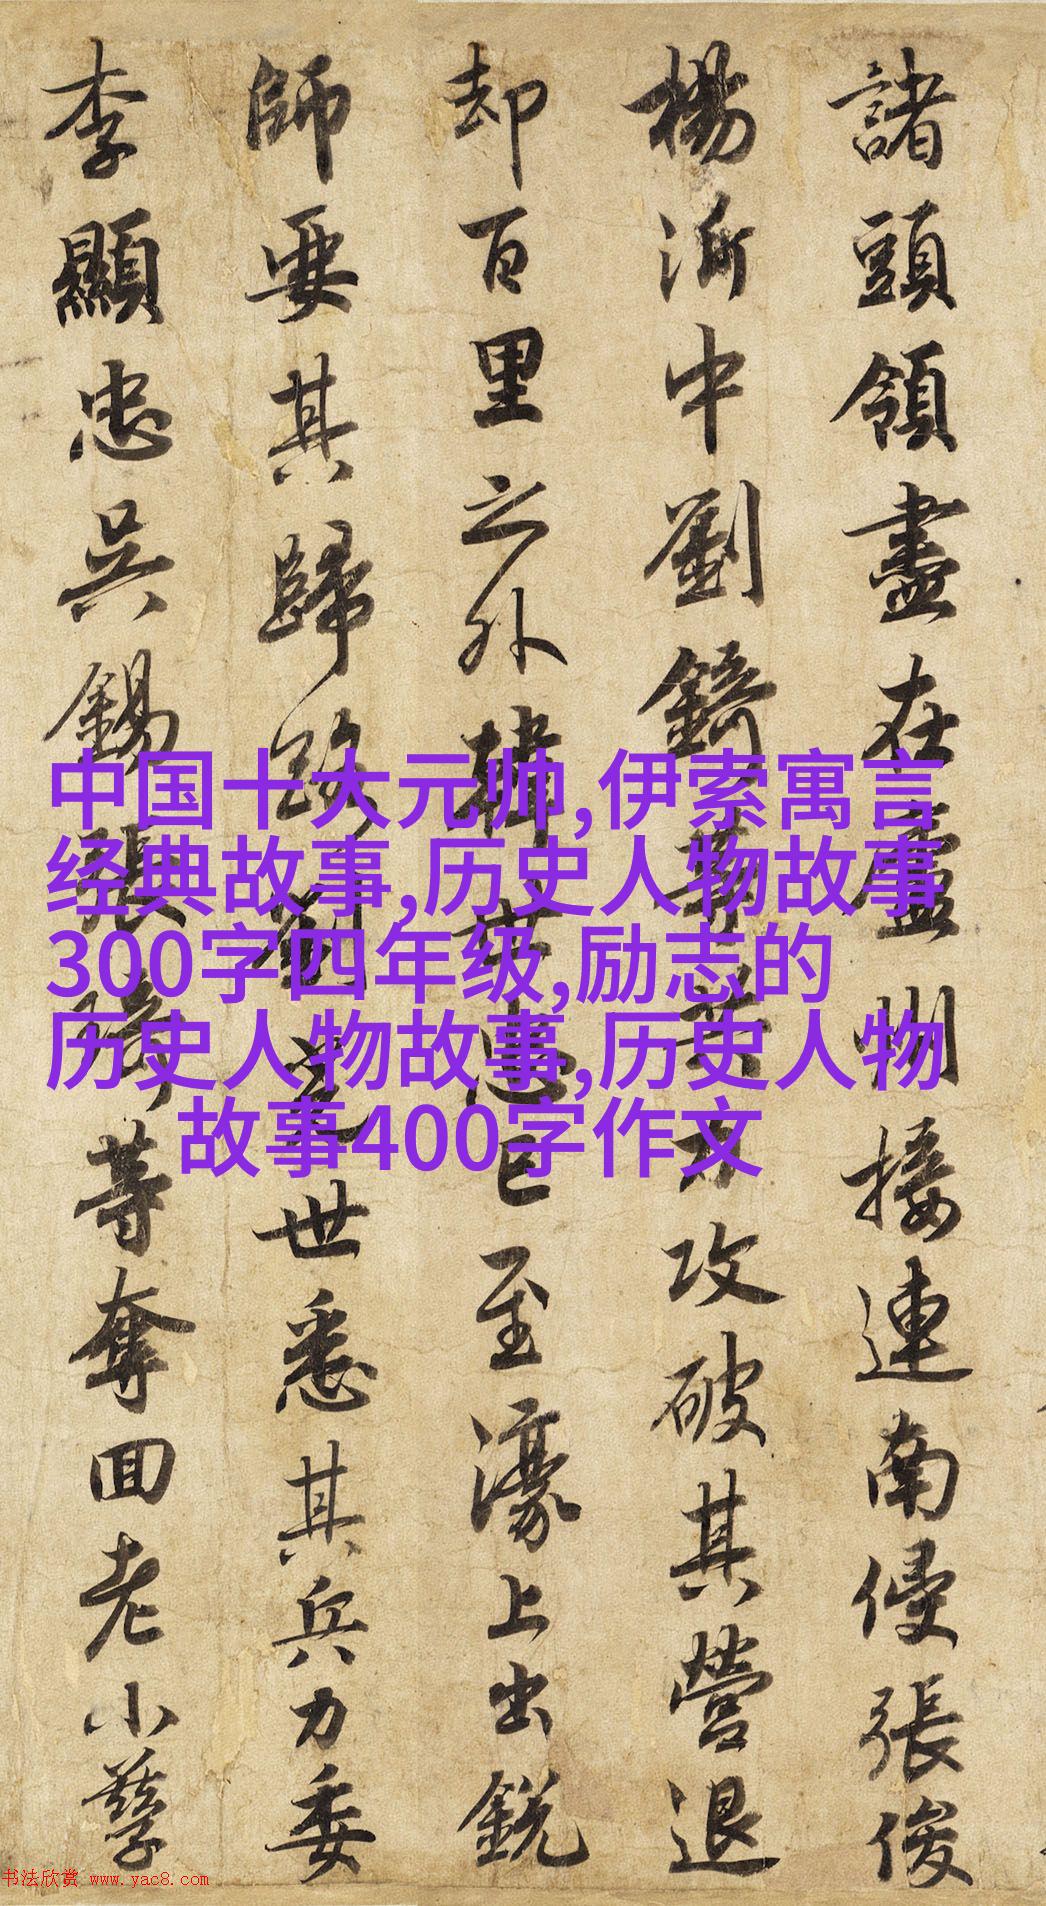 諸頭領盡在廬州接連南侵張俊
楊沂中劉錡等共力攻破其營退
却百里之外韓世忠已至濠上出銳
師要其歸路劉光世悉其兵力委
李顯忠吳錫張琦等奪回老小孳
中国十大元帅,伊索寓言
经典故事,历史人物故事
300字四年级,励志的
历史人物故事,历史人物
故事400字作文
书法欣赏 www.yac8.com